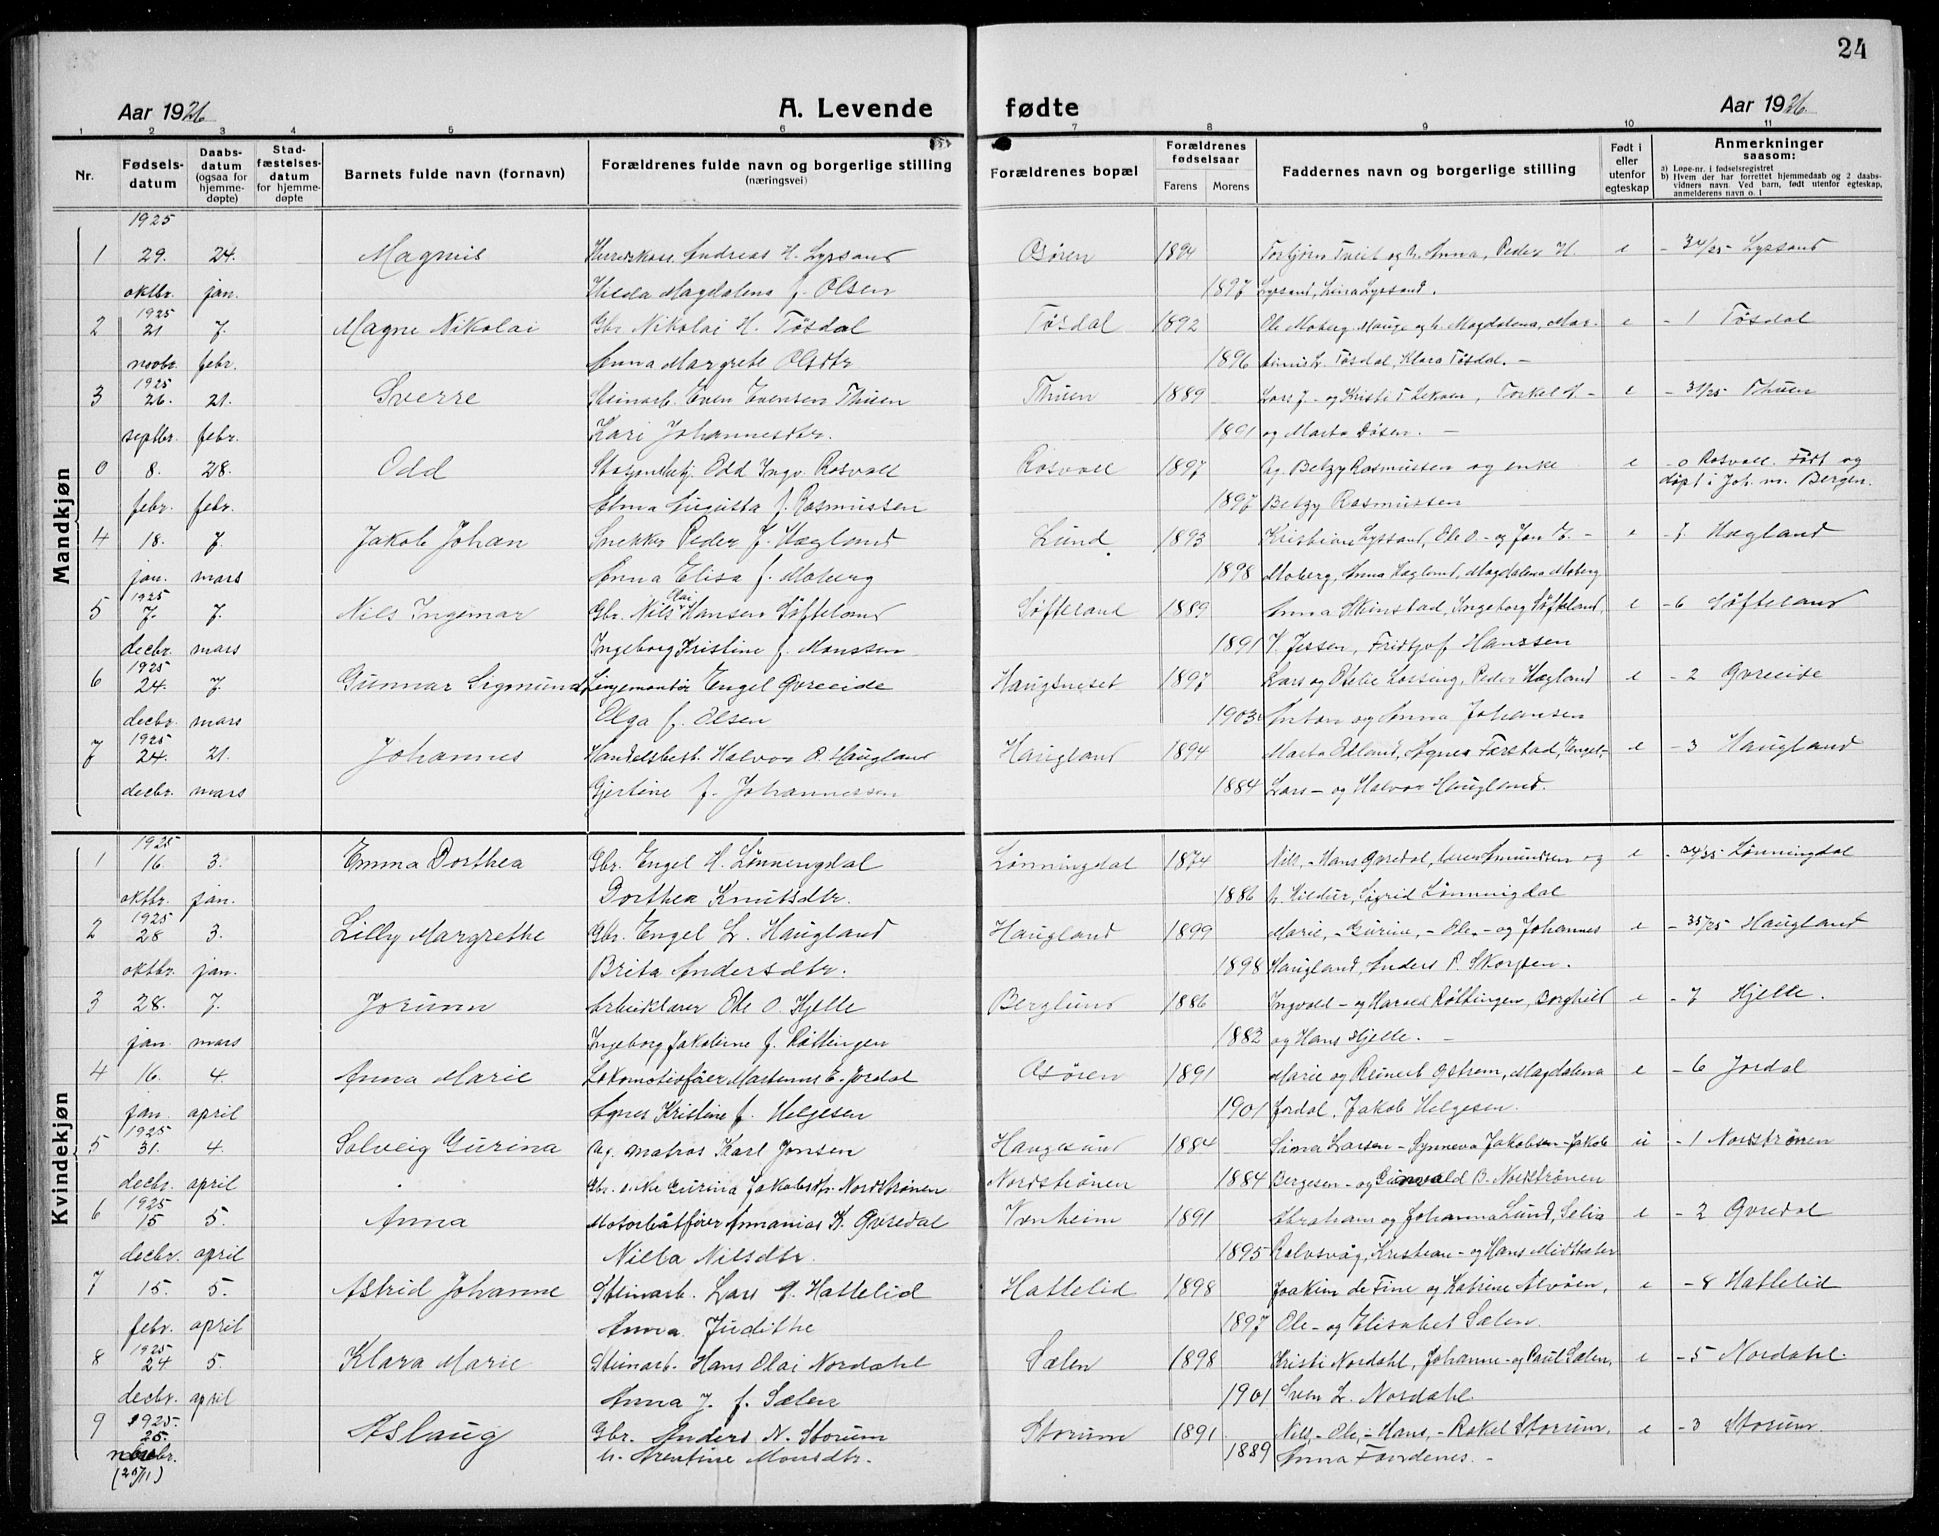 24
Aar 1926 A. Levende fødte Aar 1926
1 2 3 4 5 6 7 8 9 10 11
Nr. Fødselsdatum Daabsdatum (ogsaa for hjemmedøpte) Stadfæstelsesdatum for hjemmedøpte Barnets fulde navn (fornavn) Forældrenes fulde navn og borgerlige stilling (næringsvei) Forældrenes bopæl Forældrenes fødselsaar Farens Morens Faddernes navn og borgerlige stilling Født i eller utenfor egteskap Anmerkninger saasom: a) Løpe-nr. i fødselsregistret b) Hvem der har forrettet hjemmedaab og 2 daabsvidners navn. Ved barn, født utenfor egteskap, anmelderens navn o. l
Mandkjøn
1925
1 29. 24. Magnus Andreas H. Lyssand Osøren 1894 Torbjørn Tveit og h. Anna, Peder H. e - 34/25 Lyssand
oktbr. jan. Hilda Magdalena f. Olsen 1897 Lyssand, Lina Lyssand.
1925
2 21 7. Magne Nikolai Gbr. Nikolai H. Tøsdal Tøsdal 1892 Ole Moberg Hauge og h. Magdalena, Mar- e - 1 Tøsdal
novbr. febr. Anna Margrete Olsdtr 1896 Tøsdal, Klara Tøsdal. -
1925
3 26. 21. Sverre Stenarb. Even Evensen Thuen Thuen 1889 Lars J- og Kristi T Lekven, Torkel H- e - 31/25 Thuen
septbr. febr. Kari Johannesdtr. 1891 og Marta Døsen. -
0 8. 28. Odd Odd Ingv. Rosvoll Rosvoll 1897 Ug. Betzy Rasmussen og enke e - 0 Rosvoll. Født og
febr. febr. Alma Augusta f. Rasmussen 1897 Betzy Rasmussen døpt i Joh. m. Bergen.
4 18. 7. Jakob Johan Snekker Peder J. Hægland Lund 1893 Kristian Lyssand, Ole O- og Jon E. - e - 7. Hægland
jan. mars Anna Elisa f. Moberg 1898 Moberg, Anna Hægland, Magdalena Moberg
1925
5 7. 7. Nils Ingemar Gbr. Nils Olai Hansen Søfteland Søfteland 1889 Anna Skinstad, Ingeborg Søfteland, e - 6 Søfteland
decbr. mars Ingeborg Kristine f. Monssen 1891 J. Jessen, Fridtjof Hanssen
1925
6 24. 7. Gunnar Sigmund Linjemontør Engel Gvreeide Haugsneset 1897 Lars og Otelie Lossing, Peder Hægland e - 2 Gvreeide
decbr. mars Olga f. Olsen 1903 Anton og Anna Johansen
1925
7 24. 21. Johannes Handelsbest. Halvor O. Haugland Haugland 1894 Marta Ødland, Agnes Færstad, Engel- e - 3 Haugland
decbr. mars Gjertine f. Johannessen 1884 Lars- og Halvor Haugland.
Kvindekjøn
1925
1 16 3. Emma Dorthea Gbr. Engel H. Lønnengdal Lønningdal 1874 Nils, - Hans Gvredal, Amundsen og e - 34/25 Lønningdal
oktbr. jan. Dorthea Knutsdtr. 1886 h. Hildur, Sigrid Lønningdal
1925
2 28 3. Lilly Margrethe Gbr. Engel L. Haugland Haugland 1899 Marie, - Gurine, - Ole, - og Johannes e - 35/25 Haugland
oktbr. jan. Brita Andersdtr. 1898 Haugland, Anders P. Skorpen.
3 28. 7. Jorunn Ole O. Hjelle Berglund 1886 Ingvald - og Harald Røttingen, Borghild e - 7 Hjelle.
jan. mars Ingeborg Jakobine f. Røttingen 1882 og Hans Hjelle. -
4 16. 4. Anna Marie Lokomotivfører Martinus E. Jordal Osøren 1891 Marie og Reinert Ostrem, Magdalena e - 6 Jordal
jan. april Agnes Kristine f. Helgesen 1901 Jordal, Jakob Helgesen.
1925
5 31. 4. Solveig Gurina Ug. matros Karl Jonsen Haugesund 1884 Sina Larsen - Synneva Jakobsen - Jakob u - 1 Nordstrønen
decbr. april Gbr. enke Gurina Jakobsdtr. Nordstrønen Nordstrønen 1884 Bergesen - og Gunvald B. Nordstrønen
1925
6 15 5. Anna Motorbåtfører Annanias K. Gvredal Venheim 1891 Abraham og Johanna Lund, Selia e - 2 Gvredal
decbr. april Nilla Nilsdtr. 1895 Rolvsvåg, Kristian - og Hans Midtsæter
7 15. 5. Astrid Johanne Steinarb. Lars O. Hattelid Hattelid 1898 Joakim de Fine og Katrine Alvøen, e - 8 Hattelid
febr. april Anna Judithe 1897 Ole- og Elisabet Sælen.
1925
8 24 5. Klara Marie Steinarb. Hans Olai Nordahl Sælen 1898 Kristi Nordahl, Johanne- og Paul Sælen, e - 5 Nordahl.
decbr. april Anna J. f. Sælen 1901 Sven L. Nordahl.
1925.
9 25. Aslaug Gbr. Anders N. Storum Storum 1891 Nils, - Ole, - Hans, - Rakel Storum. e - 3 Storum.
novbr. h. Arentine Monsdtr. 1889 Anna Tandenes. -
(25/11)